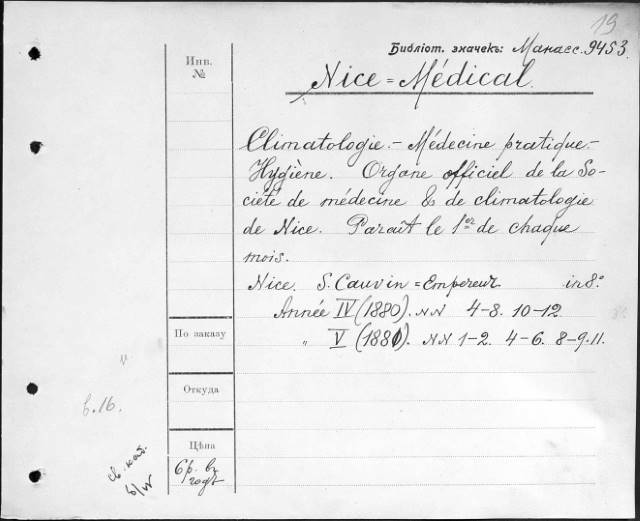 19
Библiот. значекъ: Манасс. 9453
Инв.
№
Nice = Médical.
Climatologie. – Médecine pratique –
Hygiène. Organe officiel de la So-
ciété de médecine & de climatologie
de Nice. Parait le 1er de chaque
mois.
Nice. S. Cauvin = Empereur in 8°
Année IV (1880). NN 4-8. 10-12.
" V (1881). NN 1-2. 4-6. 8-9. 11.
По заказу
Откуда
в.16.
Цѣна
св. каб.
6р. въ
годъ